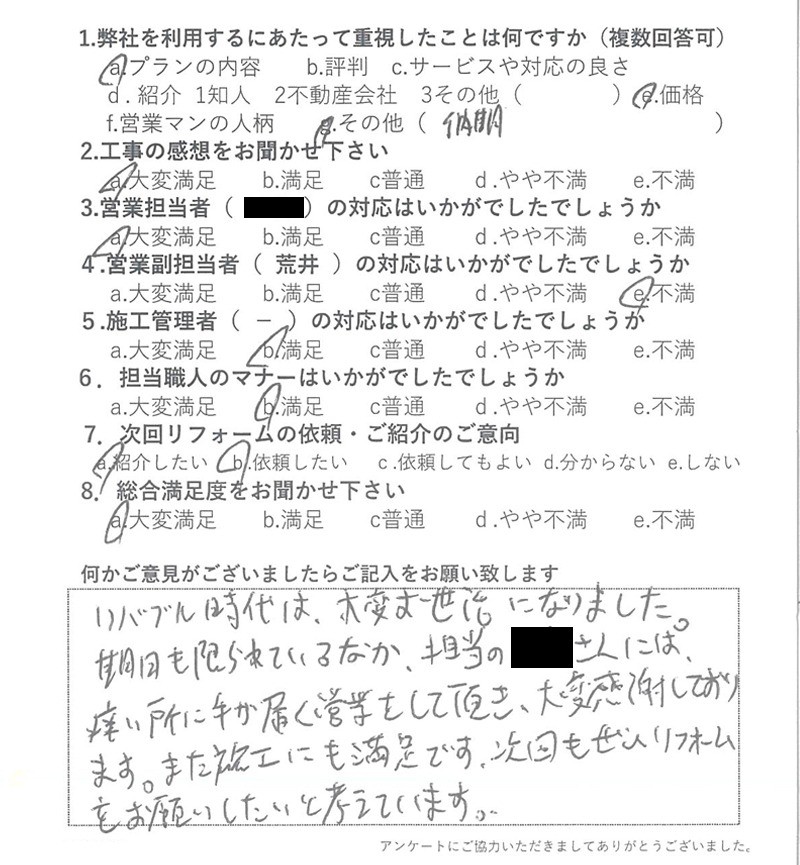 1.弊社を利用するにあたって重視したことは何ですか（複数回答可）
a.プランの内容　b.評判　c.サービスや対応の良さ
d.紹介　1知人　2不動産会社　3その他（　　　）e.価格
f.営業マンの人柄　g.その他（　納期　）
2.工事の感想をお聞かせ下さい
a.大変満足　b.満足　c普通　d.やや不満　e.不満
3.営業担当者（　）の対応はいかがでしたでしょうか
a.大変満足　b.満足　c普通　d.やや不満　e.不満
4.営業副担当者（　荒井　）の対応はいかがでしたでしょうか
a.大変満足　b.満足　c普通　d.やや不満　e.不満
5.施工管理者（　－　）の対応はいかがでしたでしょうか
a.大変満足　b.満足　c普通　d.やや不満　e.不満
6．担当職人のマナーはいかがでしたでしょうか
a.大変満足　b.満足　c普通　d.やや不満　e.不満
7．次回リフォームの依頼・ご紹介のご意向
a.紹介したい　b.依頼したい　c.依頼してもよい　d.分からない　e.しない
8．総合満足度をお聞かせ下さい
a.大変満足　b.満足　c普通　d.やや不満　e.不満
何かご意見がございましたらご記入をお願い致します
リバブル時代は、大変お世話になりました。
期日も限られているなか、担当の　さんには、
痒い所に手が届く営業をして頂き、大変感謝しており
ます。また施工にも満足です。次回もぜひリフォーム
をお願いしたいと考えています。
アンケートにご協力いただきましてありがとうございました。